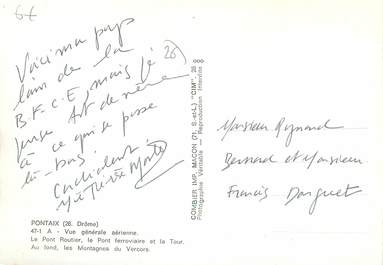 6€
Voici ma pays
loin de la
B.F.C.E, mais je (26)
pense tout de même
à ce qui se passe
là-bas.
Cordialement
COMBIER IMP. MACON (71. S.-et-L.) "CIM". 26 000
Photographie Véritable — Reproduction Interdite
Monsieur Raynaud
Bernard et Monsieur
Francis
PONTAIX (26. Drôme)
47-1 A - Vue générale aérienne.
Le Pont Routier, le Pont ferroviaire et la Tour.
Au fond, les Montagnes du Vercors.